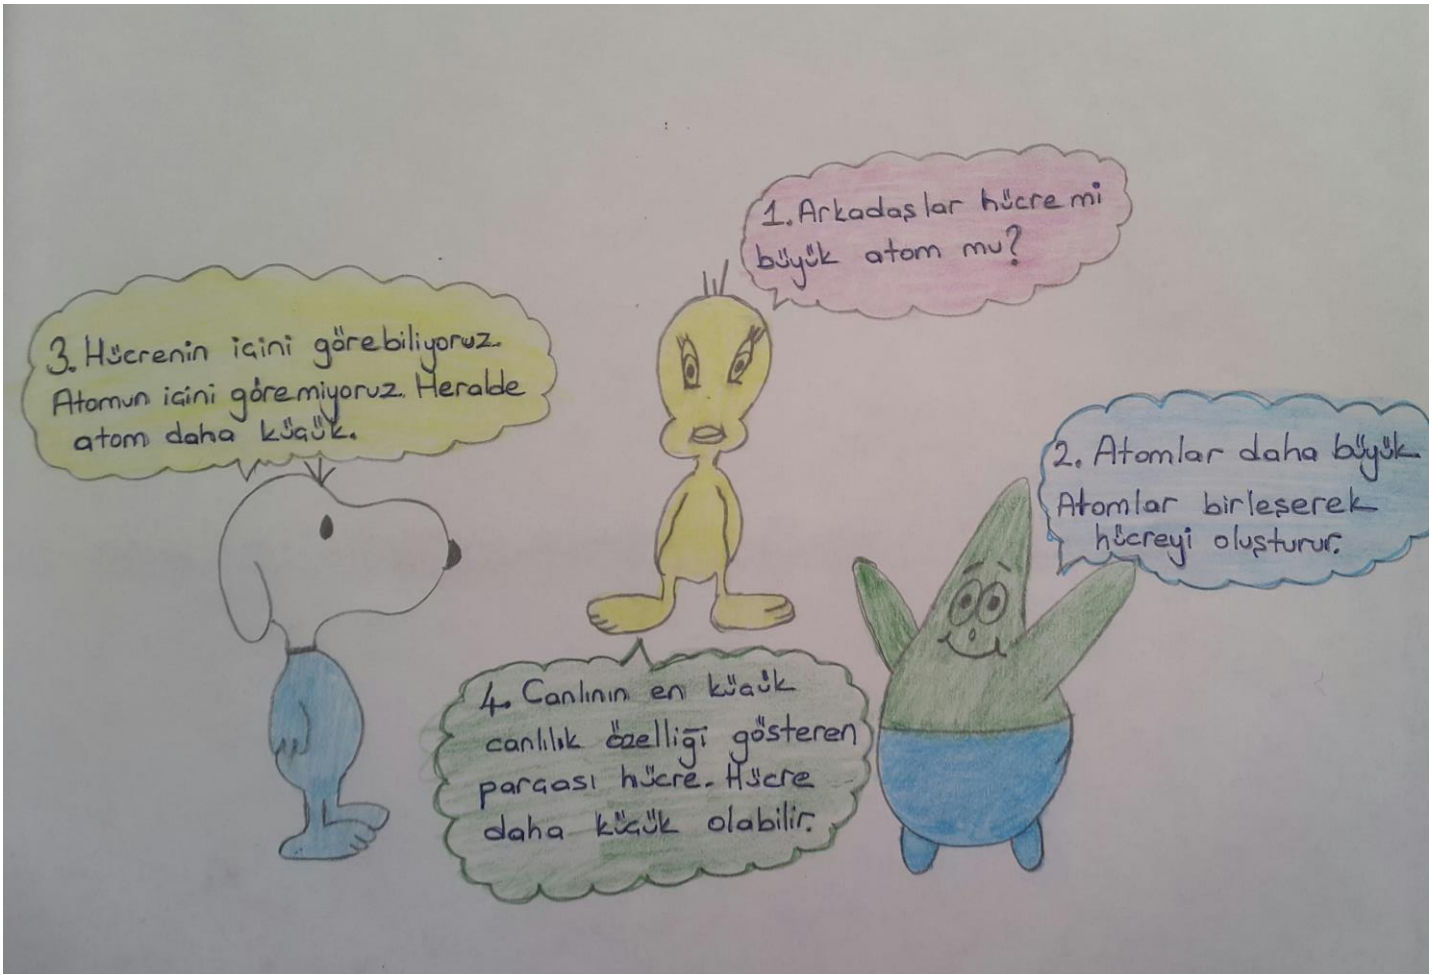 1. Arkadaşlar hücre mi
büyük atom mu?
2. Atomlar daha büyük
Atomlar birleşerek
hücreyi oluşturur.
3. Hücrenin içini görebiliyoruz.
Atomun içini göremiyoruz. Heralde
atom daha küçük.
4. Canlının en küçük
canlılık özelliği gösteren
parçası hücre. Hücre
daha küçük olabilir.